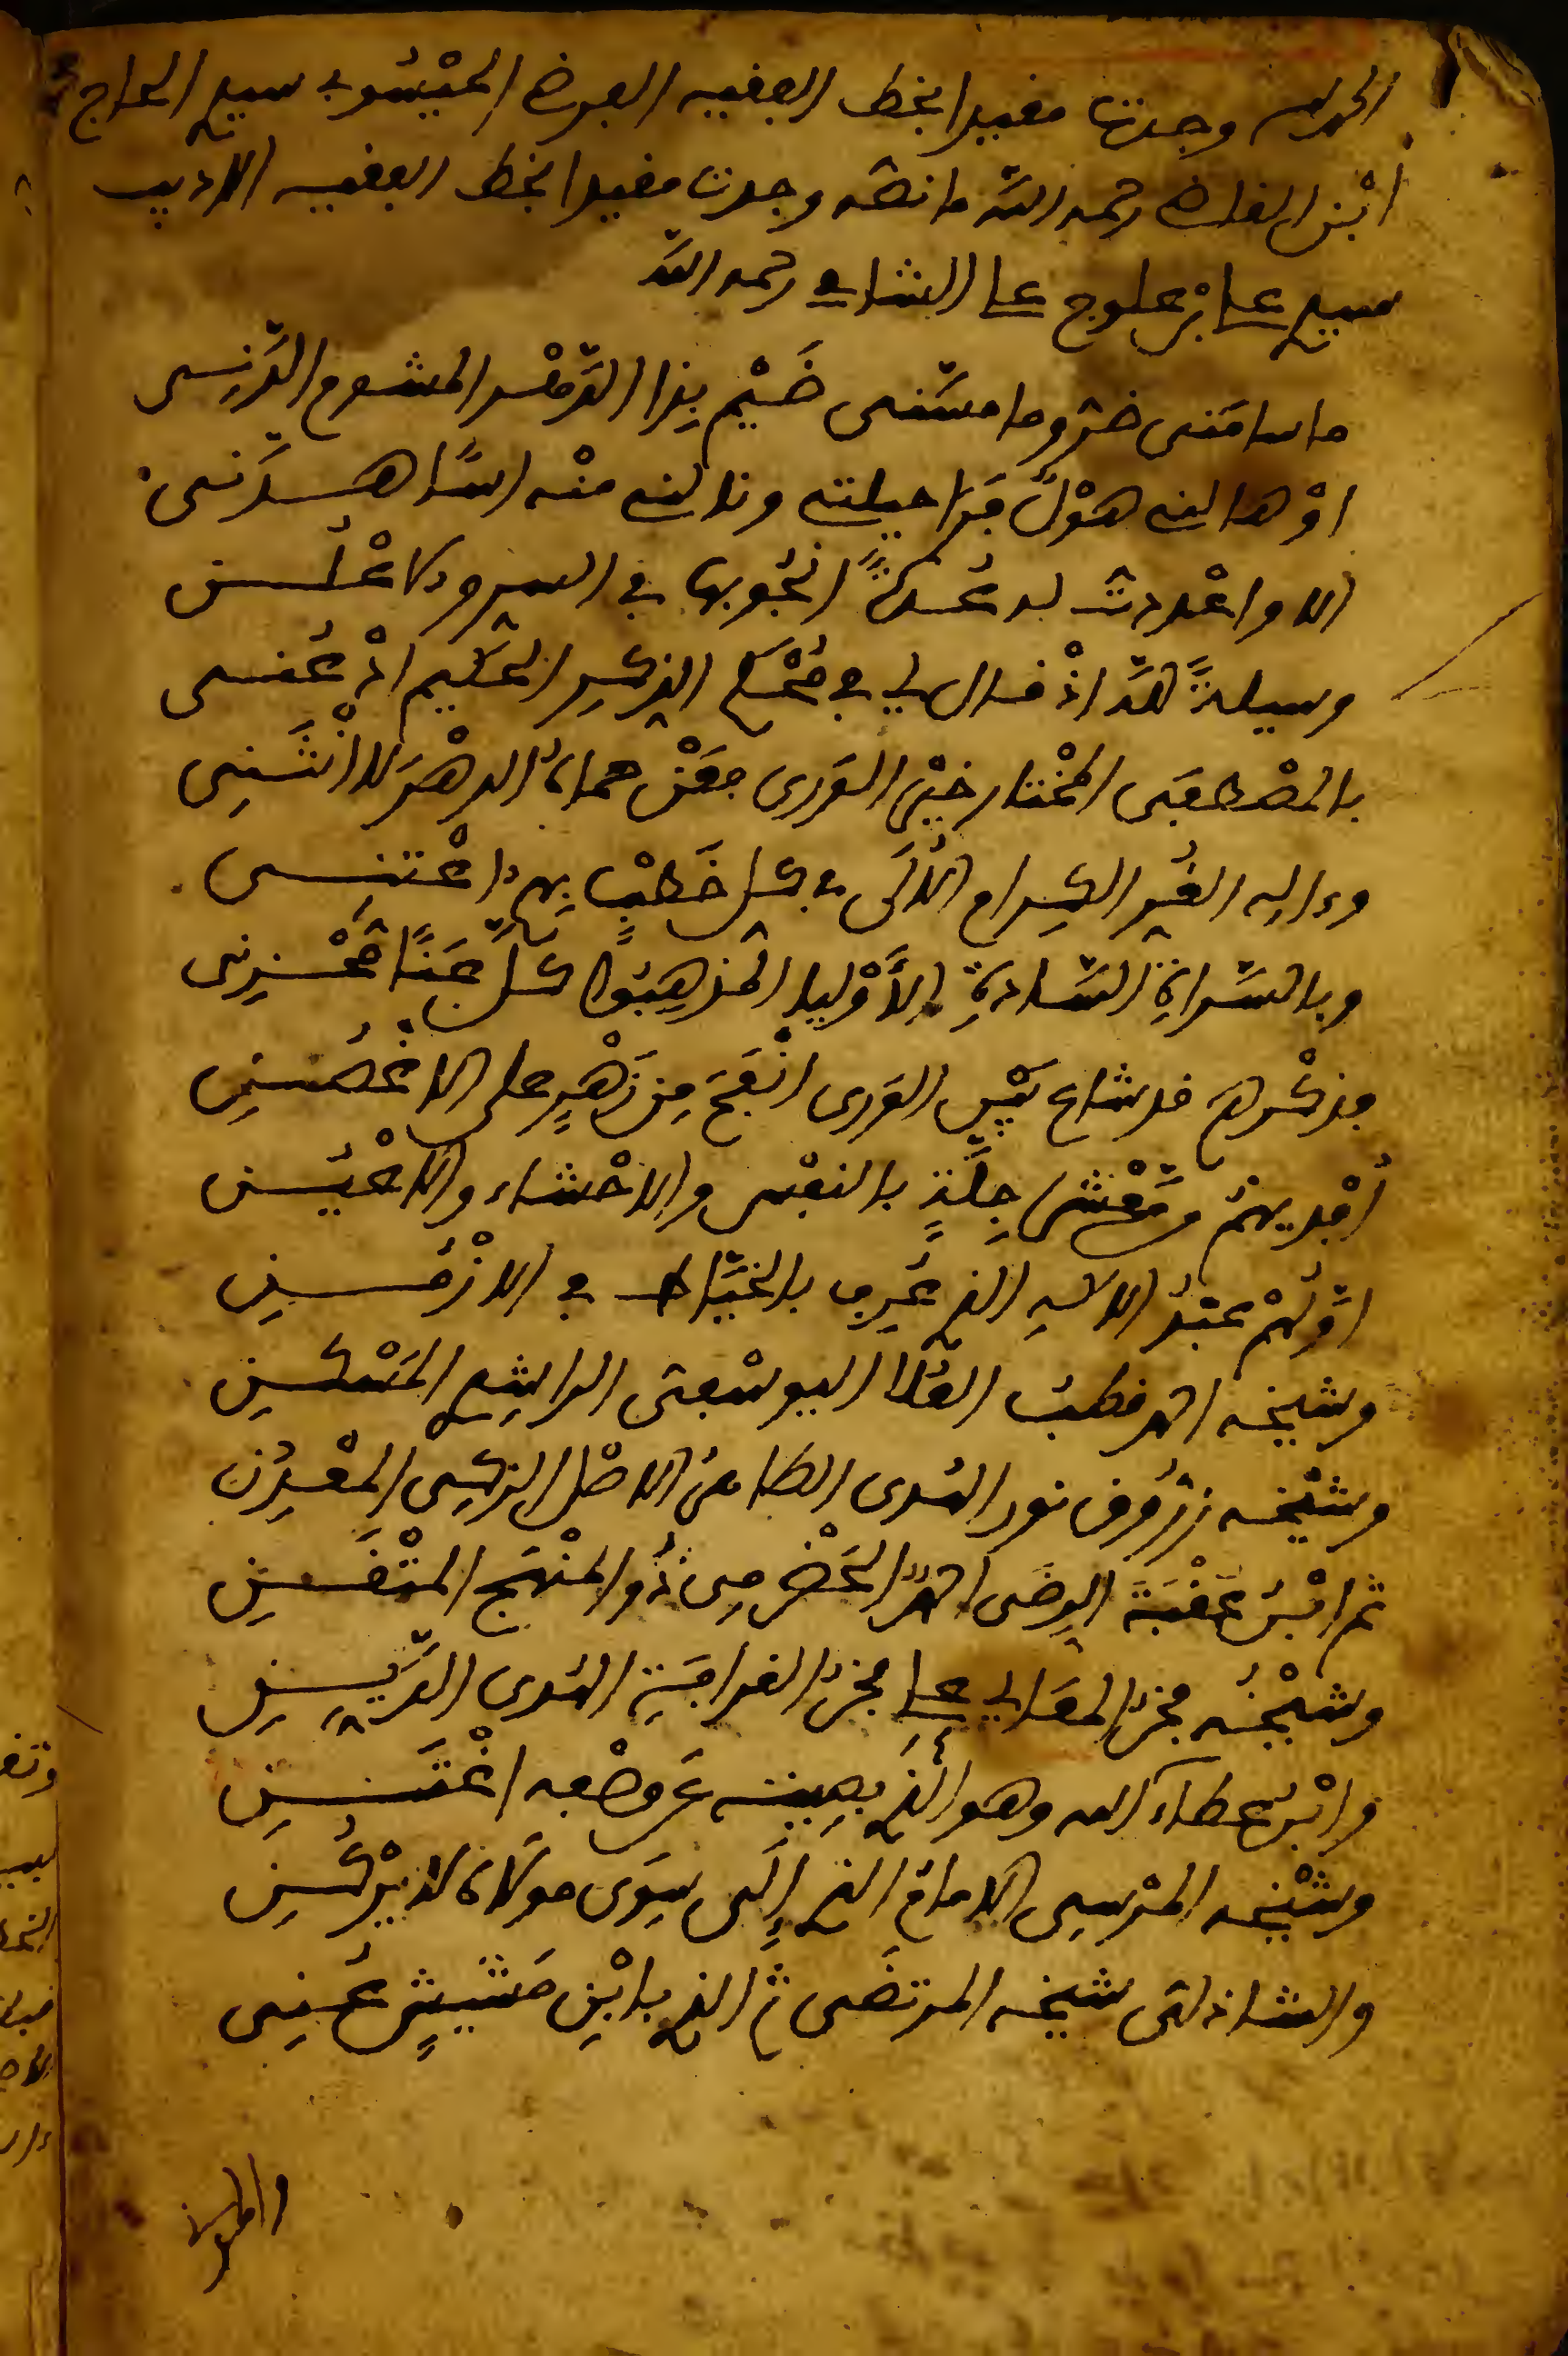 الحمد لله وجدتها مقيدا بخط الفقيه الفرضي الحيسوبي سيدي الحاج
ابن القاضي رحمه الله ما نصه وجدت مقيدا بخط الفقيه الاديب
سيدي علي بن علي الشاني رحمه الله
ما سامني ضر وما مسني ضيم بذا الدهر المشوم الدني
او هالني هول فوا حيلتي ونالني منه اسا هدني
الا واعددت له عدة انجو بها في السر والاعلن
وسيلة لله اذ قال لي في محكم الذكر الحكيم ادعني
بالمصطفى المختار خير الورى فعن حماه الدهر لا انثني
وءاله الغر الكرام الالى في كل خطب بهم اعتني
وبالسراة السادة الاوليا المذهبوا كل عنا محزني
فذكرهم قد شاع بين الورى انفح من زهر على الاغصن
أفديهم معشر جلة بالنفس والاحشاء والاعين
اولهم عبد الاله الذي عرف بالخياط في الازمن
وشيخه احمد قطب العلا اليوسفي الراشدي المسكن
وشيخه زروق نور الهدى الطاهر الاصل الزكي المعدن
ثم ابن عقبة الرضى احمد الحضرمي ذو المنهج المتقن
وشيخه فخر المعالي علي فخر القرافة الهدى الدين
وابن عطاء الله وهو الذي بصيته عن وصفه اغتني
وشيخه المرسي الامام الذي إلى سوى مولاه لا يركن
والشاذلي شيخه المرتضى ثم الذي بابن مشيش عني